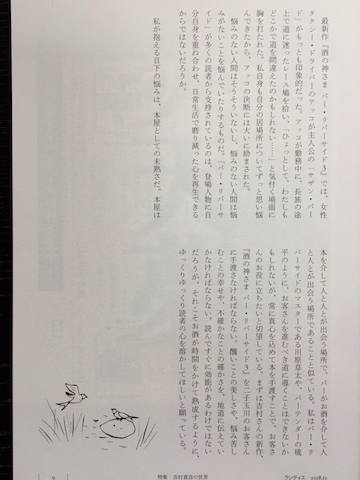 最新作『酒の神さま バー・リバーサイド3』では、女性
タクシー・ドライバーのアッコが主人公の「サザン・バー
ド」がもっとも印象的だった。アッコが勤務中に、長旅の途
上で道に迷ったレース鳩を拾い、「ひょっとして、わたしも
どこかで道を間違えたのかもしれない……」と気付く場面に
胸を打たれた。私自身も自分の居場所についてずっと思い悩
んできたから、アッコの決断には大いに励まされた。
悩みのない人間はそうそういないし、悩みのない人間は悩
みがないことを悩んでいたりするものだ。『バー・リバーサ
イド』が多くの読者から支持されているのは、登場人物に自
分自身を重ね合わせ、日常生活で磨り減った心を再生できる
からではないだろうか。
私が抱える目下の悩みは、本屋としての未熟さだ。本屋は
本を介して人と人とが出会う場所で、バーがお酒を介して人
と人とが出会う場所であることと似ている。私はバー・リ
バーサイドのマスターである川原草太や、バーテンダーの琉
平のように、お客さんを進むべき道に導くことはできないか
もしれないが、常に真心を込めて本を手渡すことで、お客さ
んのお役に立ちたいと切望している。まずは吉村さんの新作、
『酒の神さま バー・リバーサイド3』を二子玉川のお客さん
に手渡さなければならない。醜いことの美しさや、悩み苦し
むことの幸せや、不確かなことの確かさを、地道に伝えてい
かなければならない。読んですぐに効能があるわけではない
だろうが、それこそお酒が時間をかけて熟成するように、
ゆっくりゆっくり読者の心を溶かしてほしいと願っている。
9
特集 吉村喜彦の世界
ランティエ 2018.12